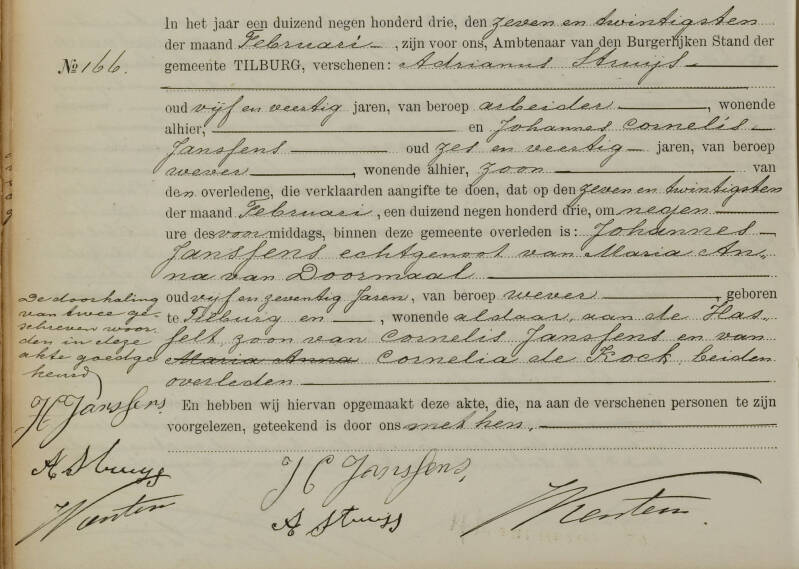 In het jaar een duizend negen honderd drie, den zeven en twintigsten
der maand Februari, zijn voor ons, Ambtenaar van den Burgerlijken Stand der
No 166.
gemeente TILBURG, verschenen: Adrianus Struijs
oud vijf en veertig jaren, van beroep arbeider, wonende
alhier, en Johannes Cornelis
Janssens oud zes en veertig jaren, van beroep
wever, wonende alhier, zoon van
den overledene, die verklaarden aangifte te doen, dat op den zeven en twintigsten
der maand Februari, een duizend negen honderd drie, om negen
ure des voormiddags, binnen deze gemeente overleden is: Johannes
Janssens echtgenoot van Maria An-
na van Doormaal
oud vijf en zeventig Jaren, van beroep wever, geboren
te Tilburg en, wonende aldaar, aan de Has-
selt, zoon van Cornelis Janssens en van
Maria Anna Cornelia de Kock, beiden
overleden
En hebben wij hiervan opgemaakt deze akte, die, na aan de verschenen personen te zijn
voorgelezen, geteekend is door ons met hen.
De doorhaling
van twee ge-
schreven woor-
den in deze
akte goedge
keurd
JC Janssens,
A Struijs
JC Janssens,
A Struijs